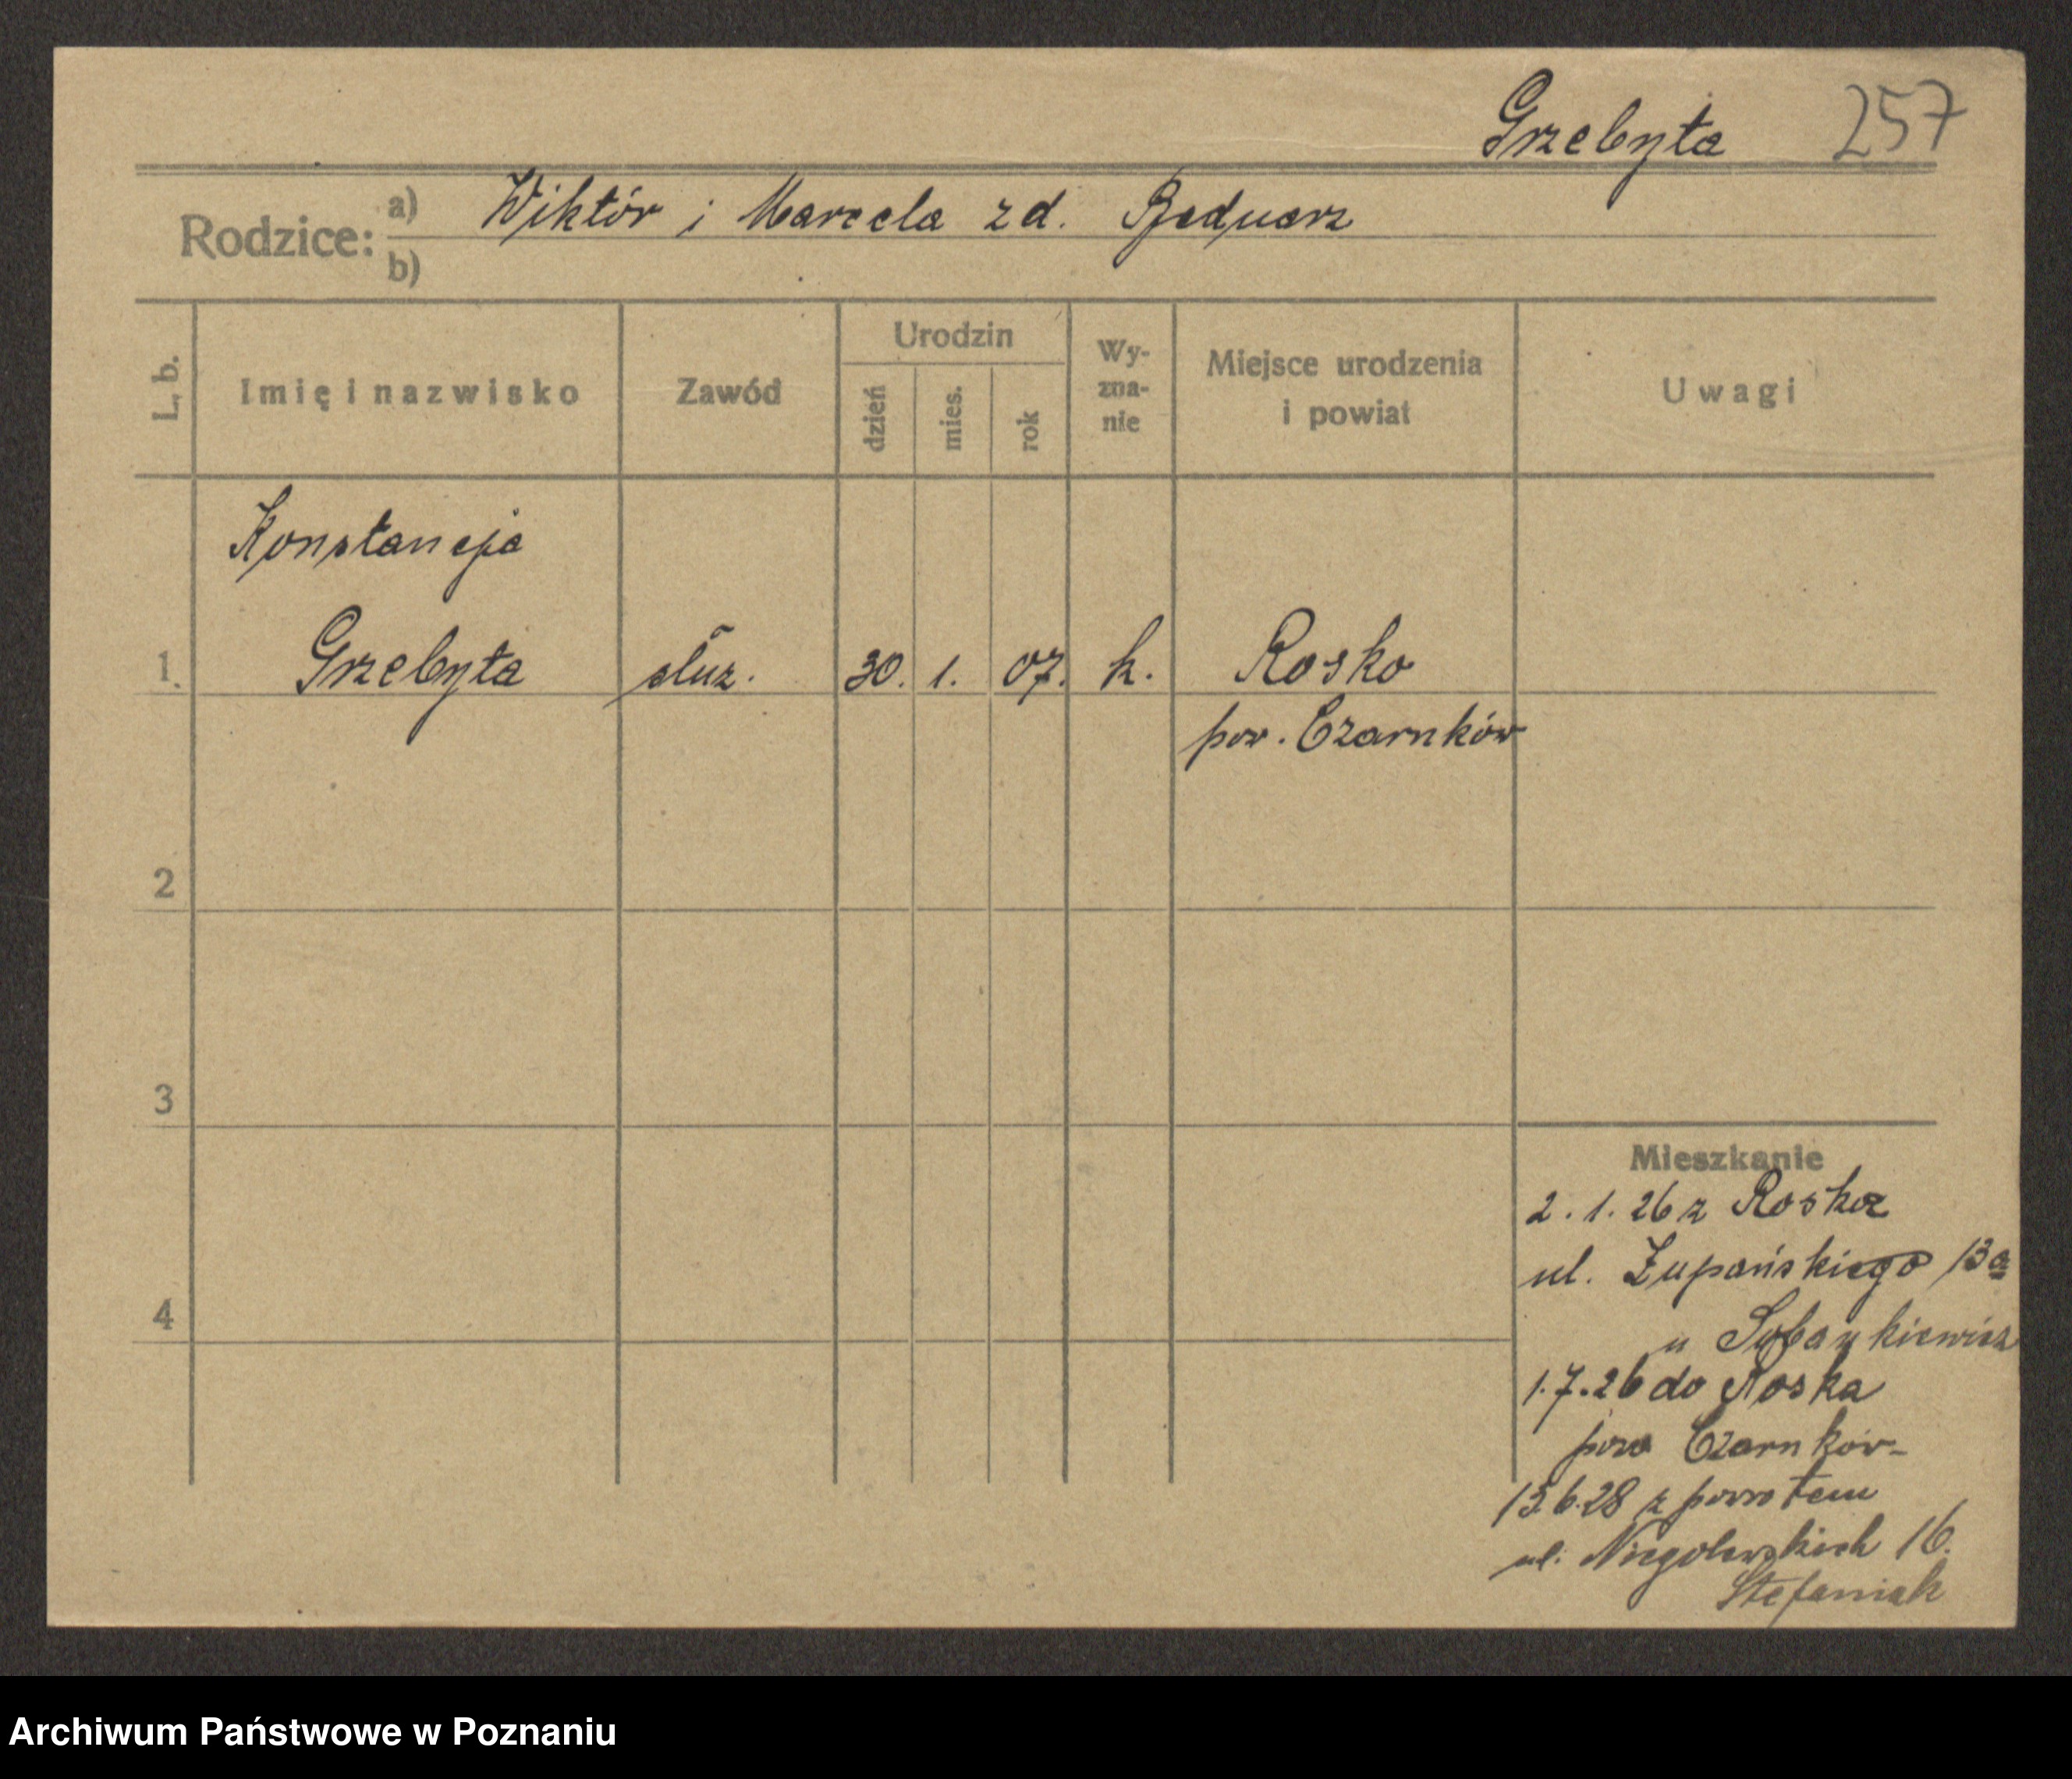 Grzebyta 257
Rodzice: a) Wiktór i Marcela zd. Bednarz
b)
L. b.
Imię i nazwisko
Zawód
Urodzin
dzień
mies.
rok
Wy-
zna-
nie
Miejsce urodzenia
i powiat
Uwagi
Konstancja
1. Grzebyta służ. 30. 1. 07. k. Rosko
pow. Czarnków
2
3
4
Mieszkanie
2.1.26 z Roska
ul. Żupańskiego 13a
u
1.7.26 do Roska
pow Czarnków
13.6.28 z powrotem
ul. Niegolewskich 16.
Stefaniak
Archiwum Państwowe w Poznaniu